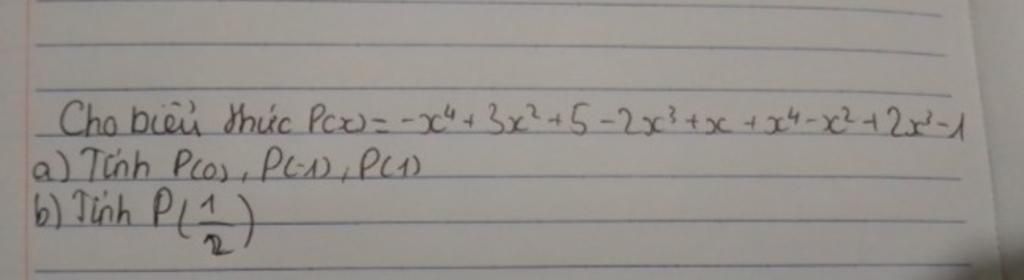 Cho biểu thức P(x) = -x⁴ + 3x² + 5 - 2x³ + x + x⁴ - x² + 2x³ - 1
a) Tính P(0), P(-1), P(1)
b) Tính P(1/2)